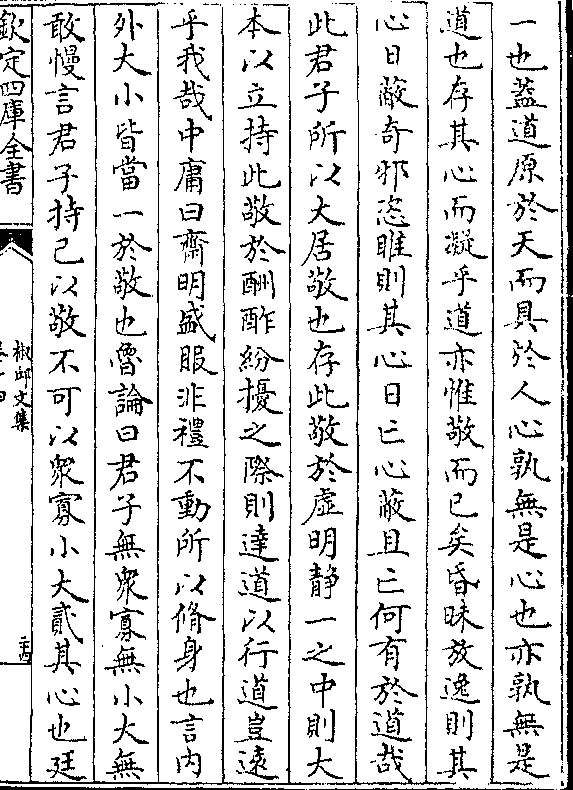 一也葢道原於天而具於人心孰無是心也亦孰無是
道也存其心而凝乎道亦惟敬而已矣昏昧放逸則其
心日蔽奇邪恣睢則其心日亡心蔽且亡何有於道哉
此君子所以大居敬也存此敬於虛明静一之中則大
本以立持此敬於酬酢紛擾之際則達道以行道豈遠
乎我哉中庸曰齋明盛服非禮不動所以脩身也言内
外大小皆當一於敬也魯論曰君子無衆寡無小大無
敢慢言君子持己以敬不可以衆寡小大貳其心也廷
欽定四庫全書
椒邱文集